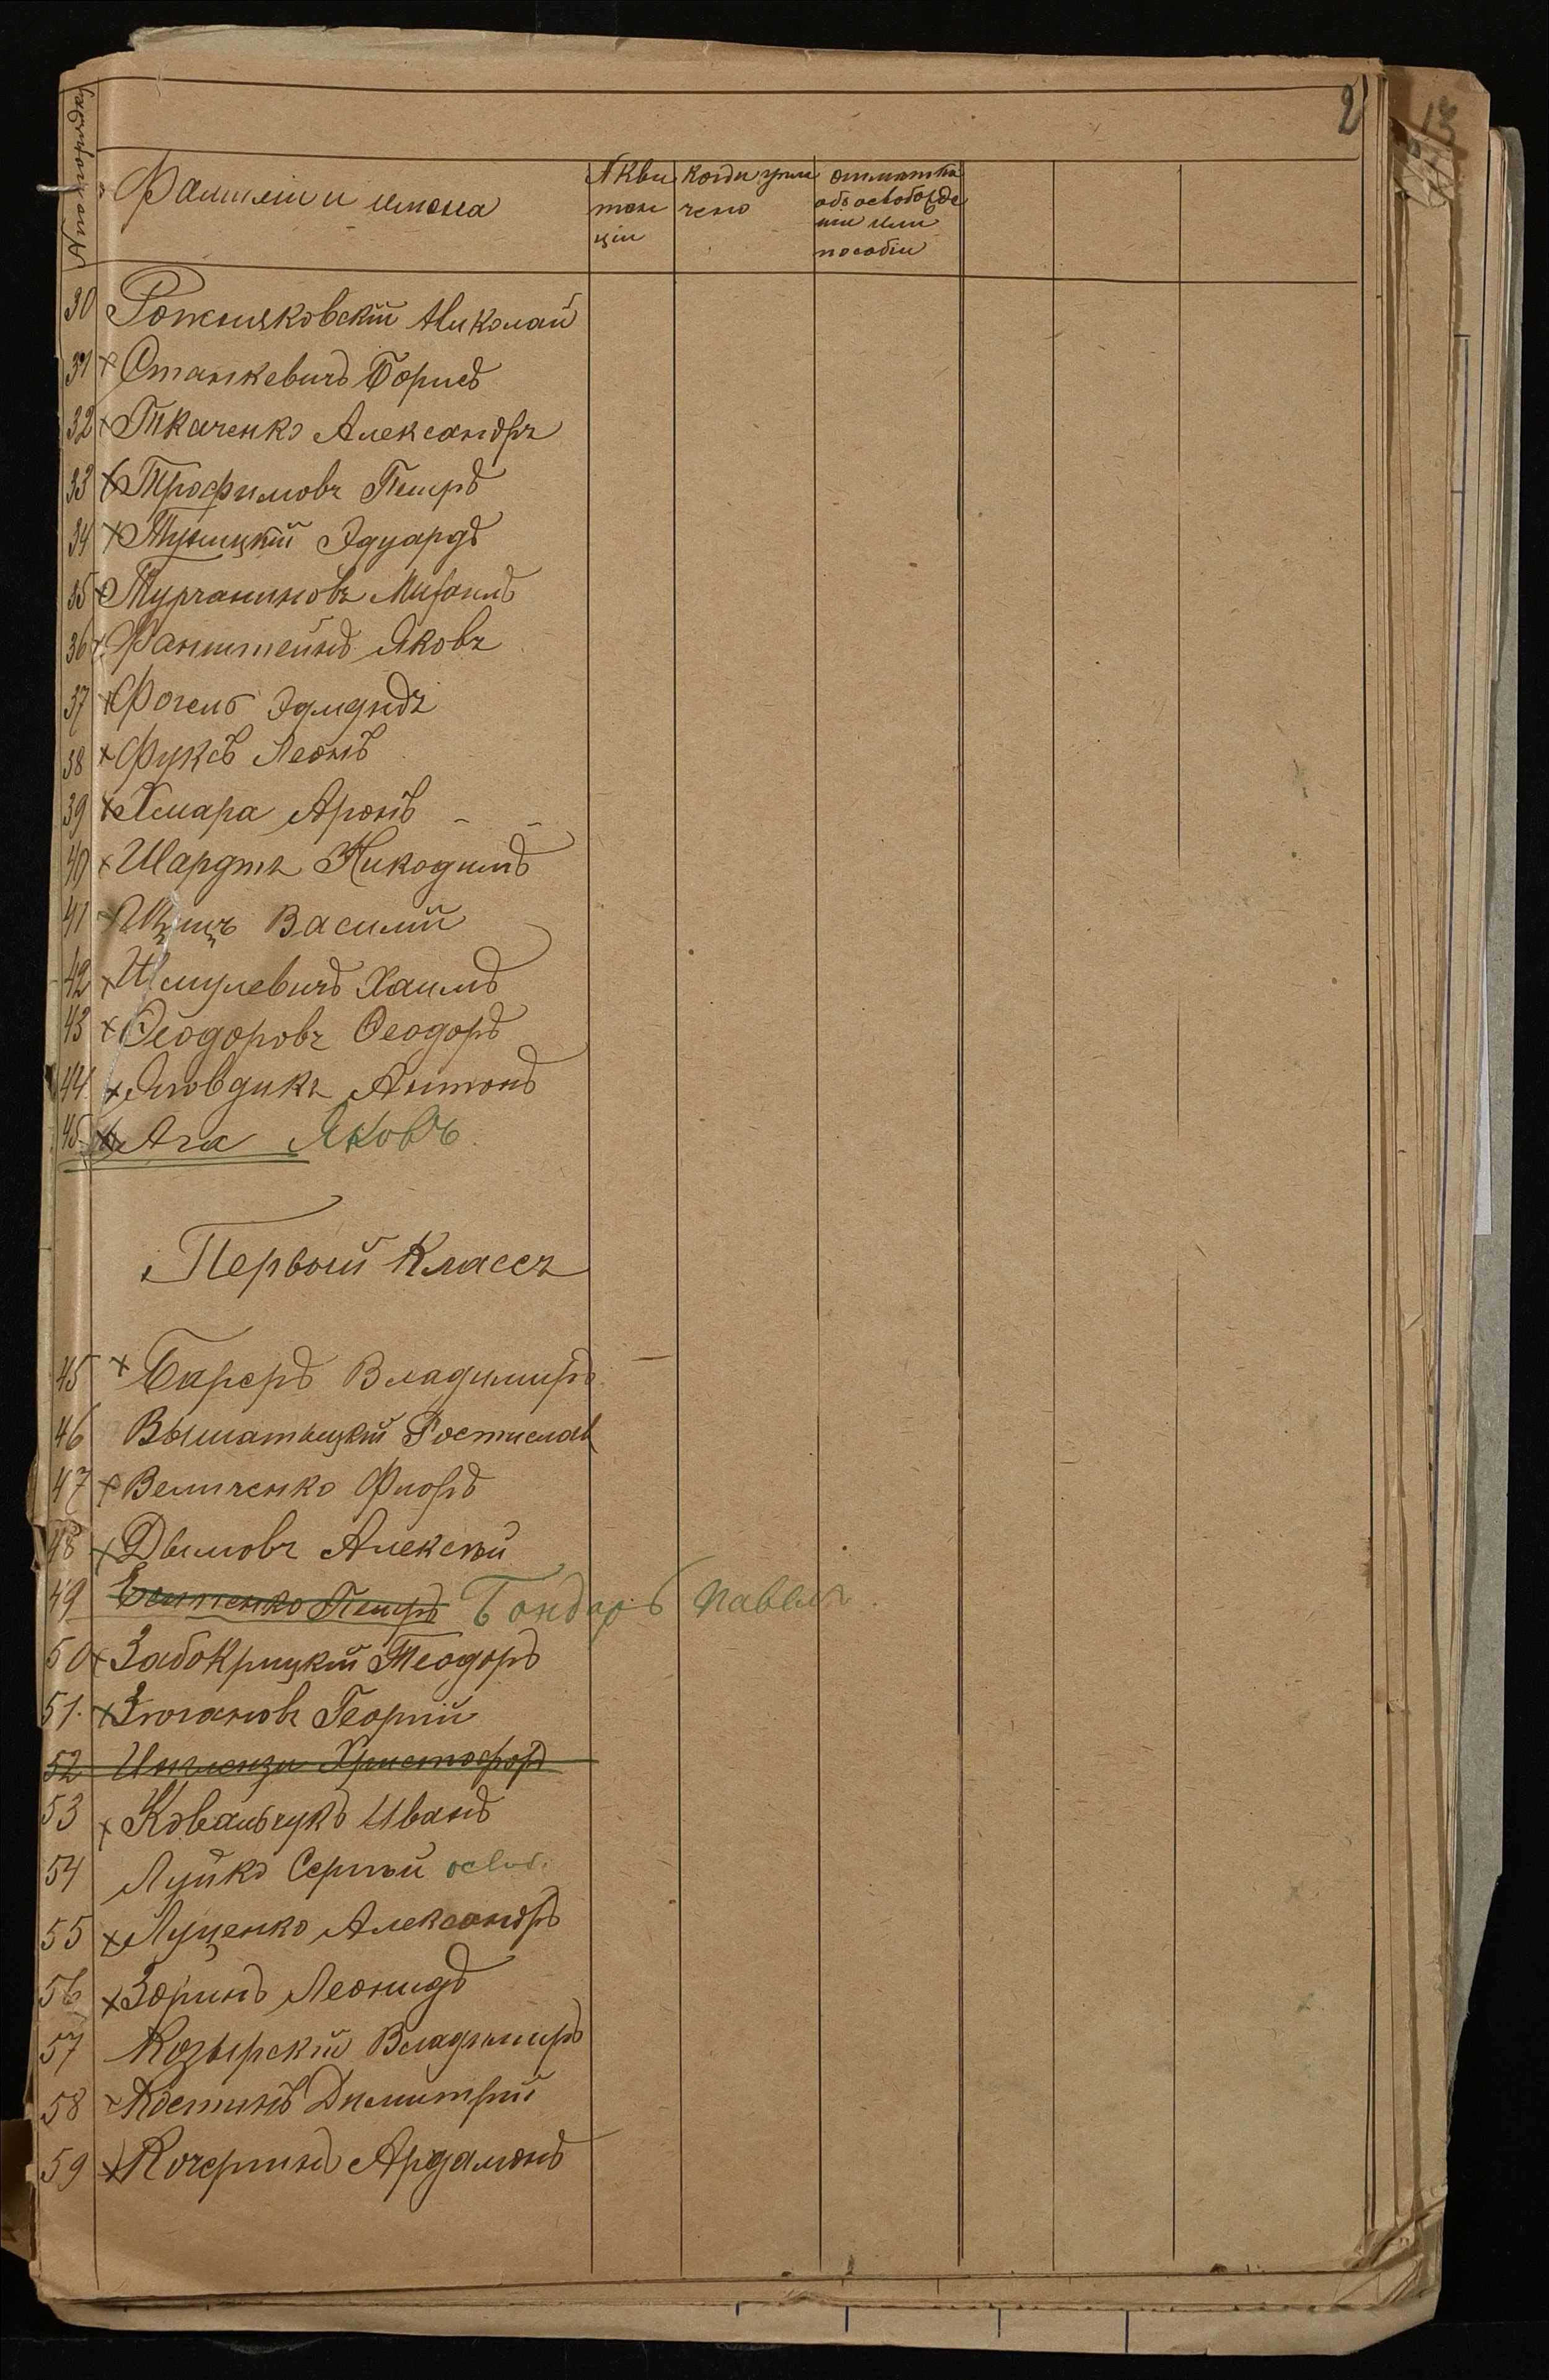 2
№ по порядку
Фамилiи и имена
№ квитанцiи
когда упла чено
отметка объ освобожде нiи или пособiи
30 Рожняковскiй Николай
31 × Станкевичъ Борисъ
32 × Ткаченко Александръ
33 × Трофимовъ Петръ
34 × Тулицкiй Эдуардъ
35 × Турчаниновъ Михаилъ
36 × Файнштейнъ Яковъ
37 × Фогель Эдмундъ
38 × Фуксъ Леонъ
39 × Хмара Аронъ
40 × Шардтъ Никодимъ
41 × Василiй
42 × Шмулевичъ Хаимъ
43 × Ѳеодоровъ Ѳеодоръ
44. × Яговдикъ Антонъ
45 × Ага Яковъ
Первый Классъ
45 × Бареръ Владимиръ
46 Вышатыцкiй Ростислав
47 × Величенко Флоръ
48 × Дымовъ Алексѣй
49 Евтенко Петръ Бондарь Павелъ
50 × Забокрицкiй Теодоръ
51. × Зюгановъ Георгiй
52 Инглези Христофоръ
53 × Ковальчукъ Иванъ
54 Луйко Сергѣй освоб.
55 × Луценко Александръ
56 × Зоринъ Леонидъ
57 Козырскiй Владимиръ
58 × Костинъ Димитрiй
59 × Кочергинъ Ардалiонъ